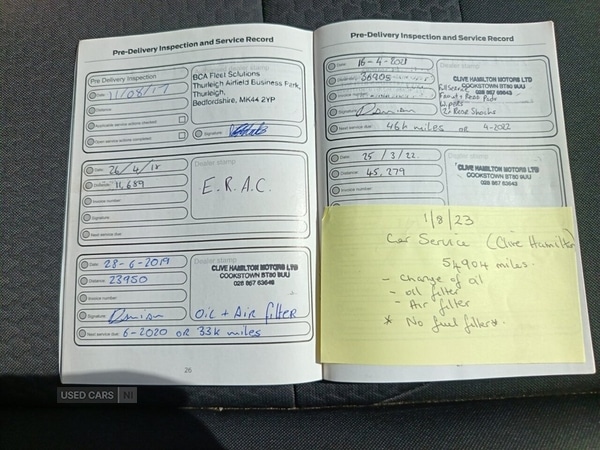 Pre-Delivery Inspection and Service Record
Pre Delivery Inspection
Date: 11/08/17
Distance:
Appropriate service actions checked:
Open service actions completed:
Authorised dealer stamp
BCA Fleet Solutions
Thurleigh Airfield Business Park,
Thurleigh,
Bedfordshire, MK44 2YP
Signature:
Date: 26/4/18
Distance: 11,689
Invoice number:
Signature:
Next service due:
Dealer stamp
E.R.A.C.
Date: 28-6-2019
Distance: 23950
Invoice number:
Signature:
Next service due: 6-2020 OR 33K miles
Dealer stamp
CLIVE HAMILTON MOTORS LTD
COOKSTOWN BT80 9UU
028 867 63643
OIL + AIR FILTER
26
Pre-Delivery Inspection and Service Record
Date: 16-4-2021
Distance: 36905
Invoice number:
Signature:
Next service due: 46K miles OR 4-2022
Dealer stamp
CLIVE HAMILTON MOTORS LTD
COOKSTOWN BT80 9UU
028 867 63643
Full Service
Front + Rear Pads
Wipers
2x Rear Shocks
Date: 25/3/22
Distance: 45,279
Invoice number:
Dealer stamp
CLIVE HAMILTON MOTORS LTD
COOKSTOWN BT80 9UU
028 867 63643
1/8/23
Car Service (Clive Hamilton)
54904 miles.
- Change of oil
- oil filter
- Air filter
* No fuel filter *.
USED CARS NI